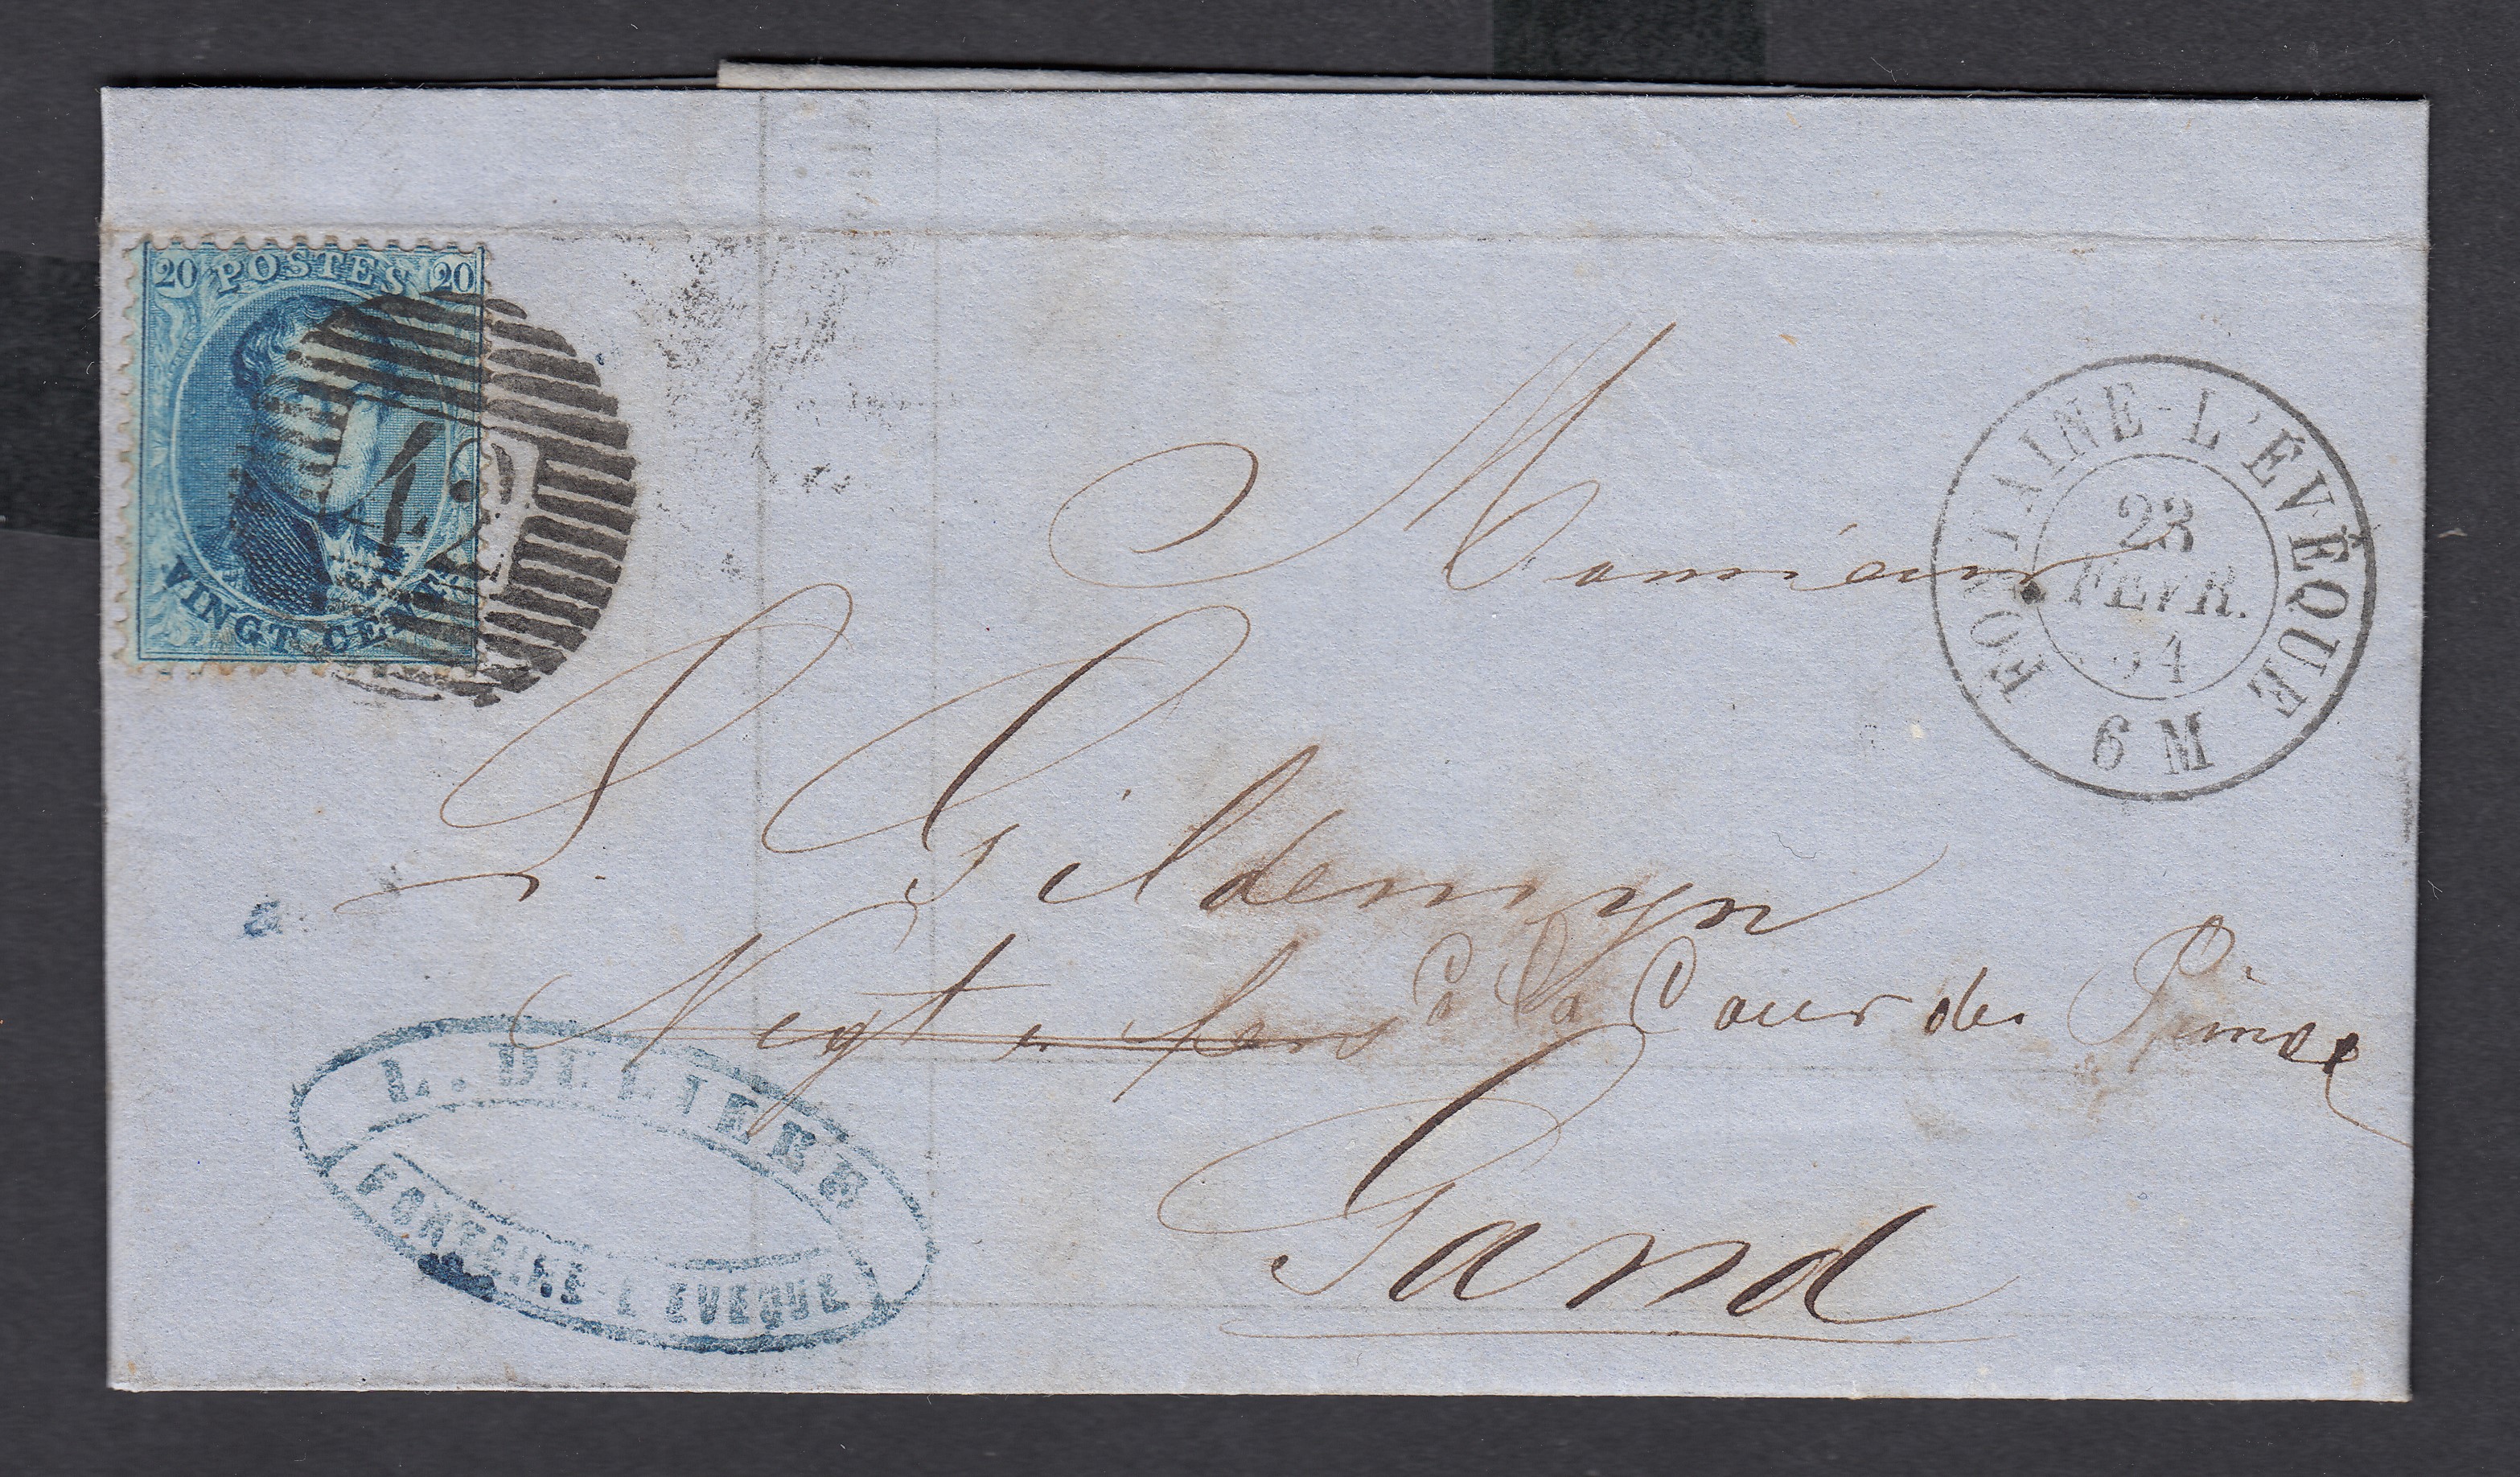 20 POSTES 20
VINGT CENT
42
FONTAINE-L'ÉVÊQUE
23
FEVR.
6 M
Monsieur
Gildemyn
Negt en fers à la Cour des Prince
Gand
L. DELIEEE
FONTAINE-L'EVEQUE